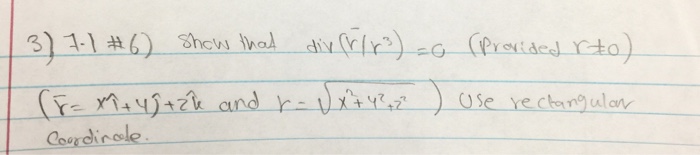 3) 7.1 #6) Show that div(r̄/r³) = 0 (Provided r≠0)
(r̄ = xî + yĵ + zk̂ and r = √x²+y²+z² ) Use rectangular
Coordinate.